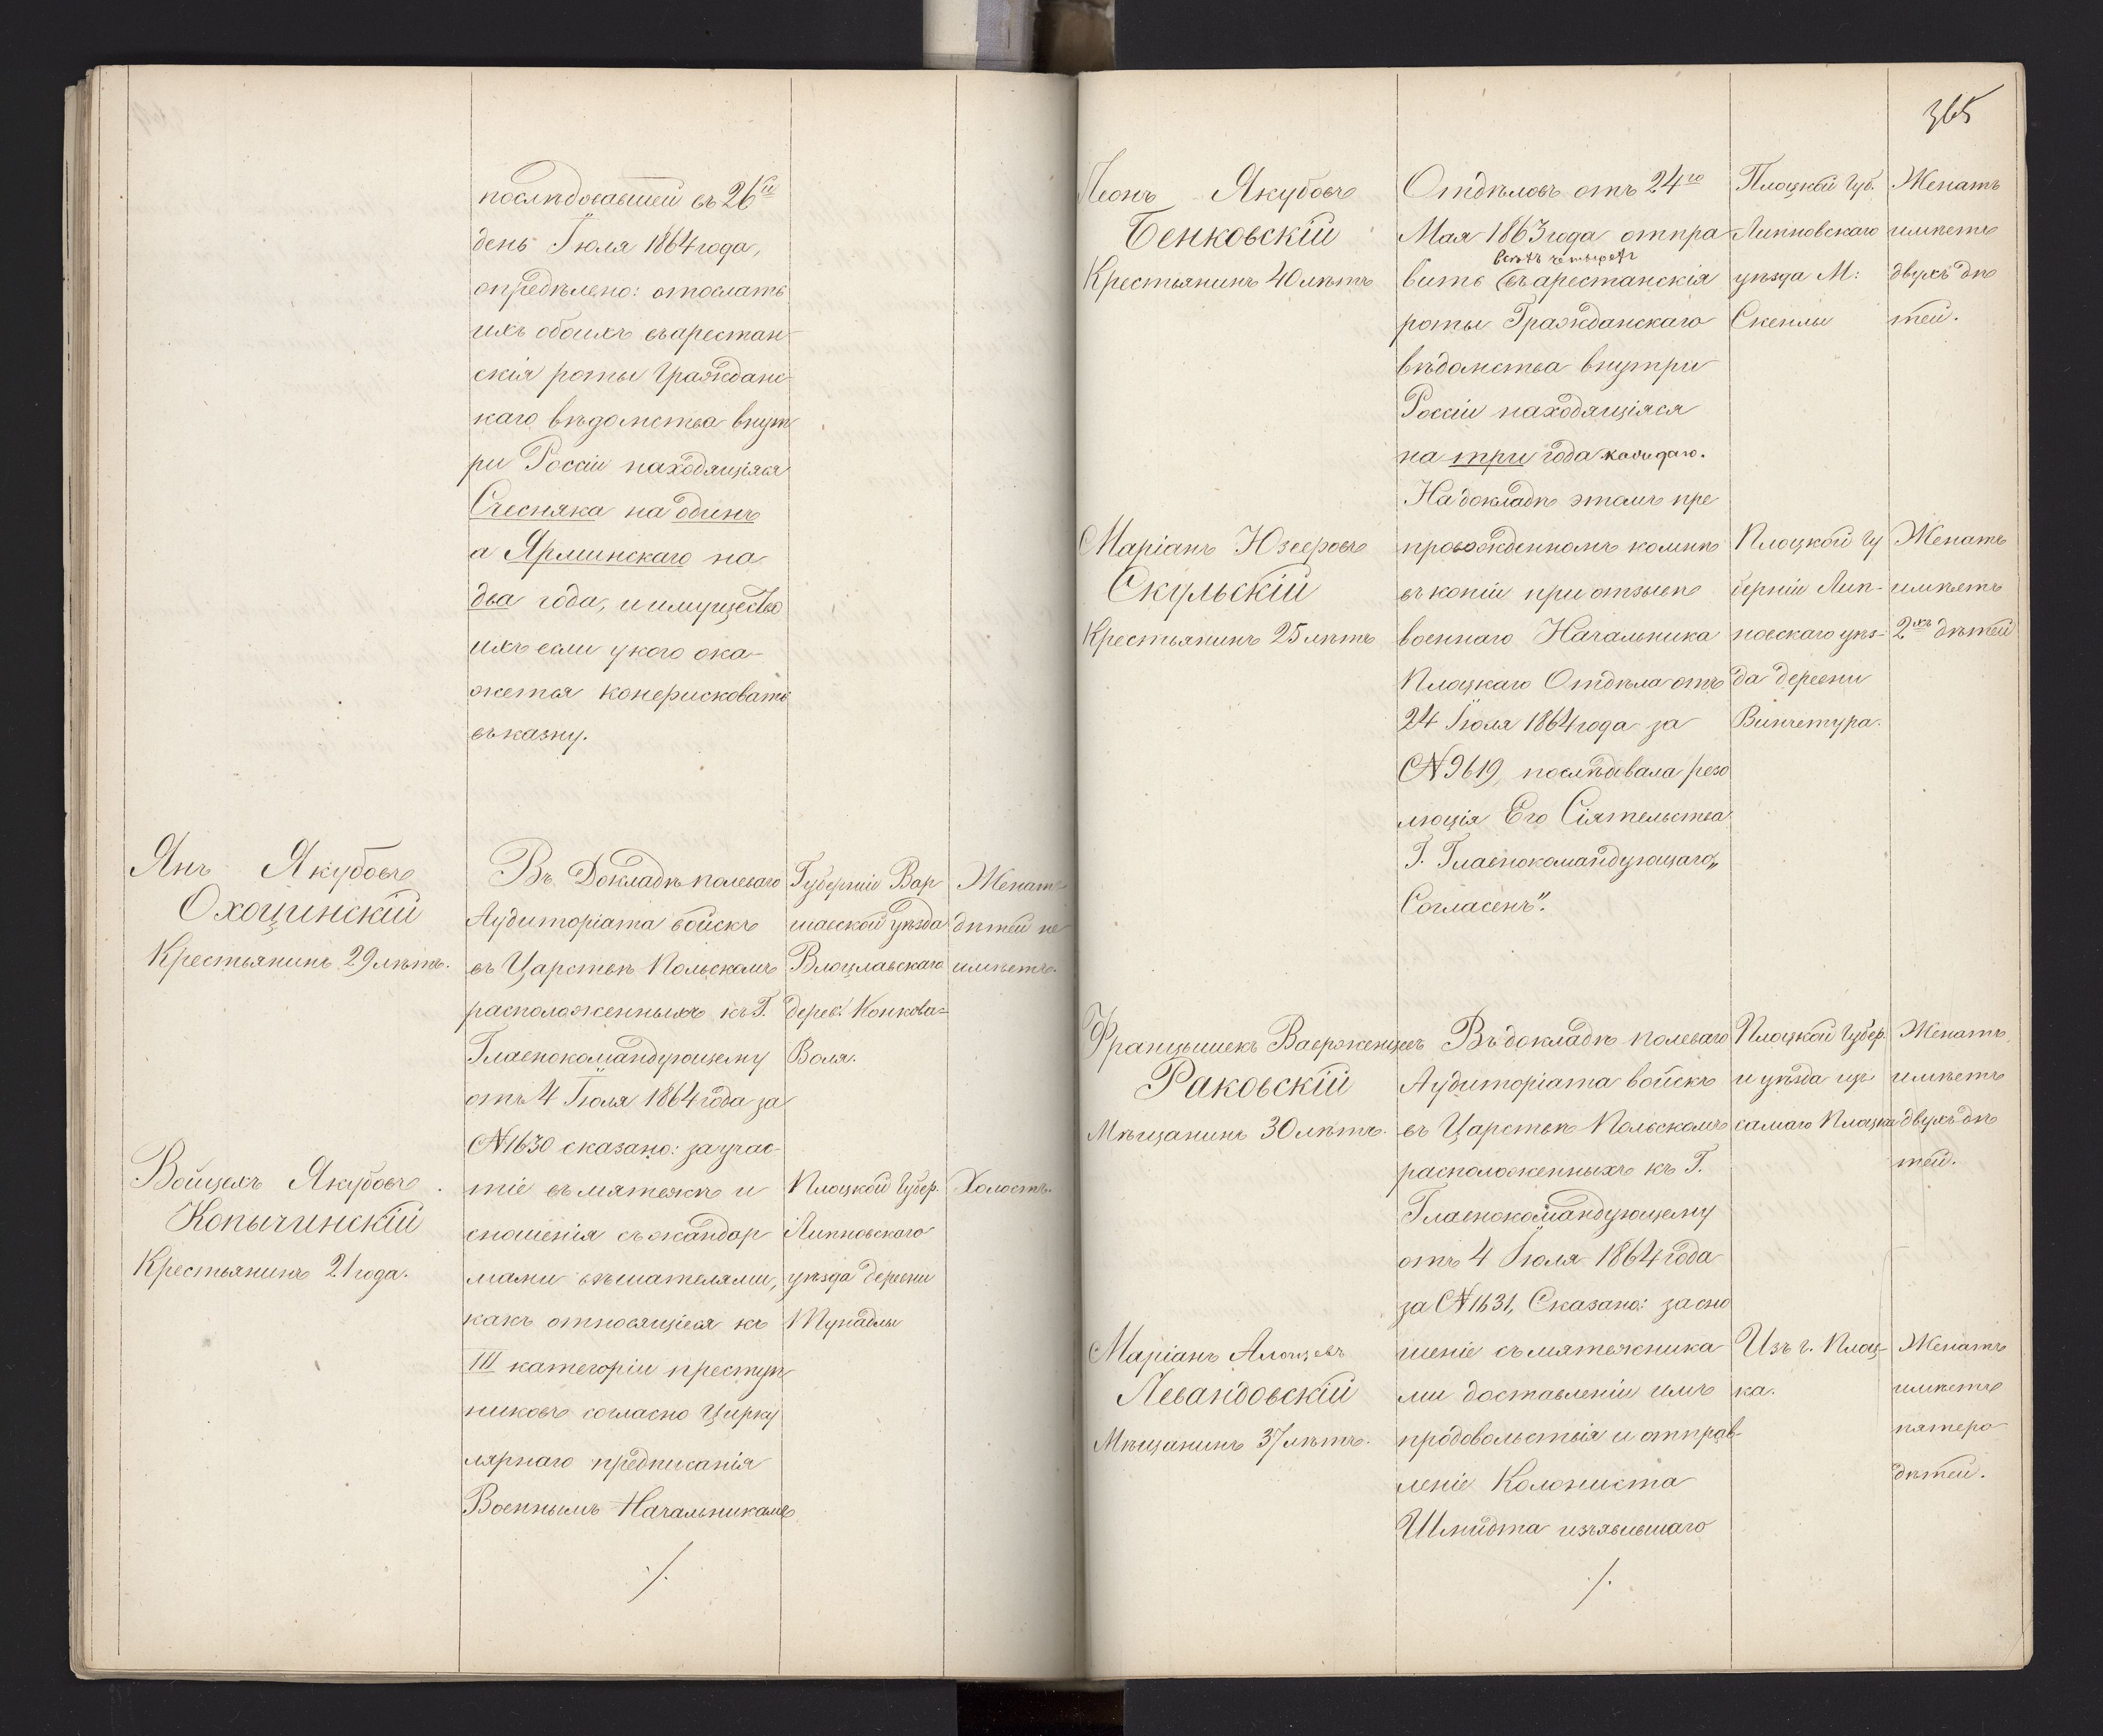 послѣдовавшей въ 26й
день Іюля 1864 года,
опредѣлено: отослать
ихъ обоихъ въ арестан-
скія роты Гражданс-
каго вѣдомства внут
ри Россіи находящіяся
Счесняка на одинъ
а Ярминскаго на
два года, и имущество
ихъ если у кого ока-
жется конфисковать
въ казну.
Янъ Якубовъ
Охоцинскій
Крестьянинъ 29 лѣтъ.
Въ Докладѣ полеваго
Аудиторіата войскъ
въ Царствѣ Польскомъ
расположенныхъ къ Г.
Главнокомандующему
отъ 4 Іюля 1864 года за
№ 1630 сказано: за учас-
тіе въ мятежѣ и
сношенія съ жандар
мами вѣшателями,
какъ относящіеся къ
III категоріи преступ
никовъ согласно Цирку
лярнаго предписанія
Военнымъ Начальникамъ
./.
Губерніи Вар
шавской уѣзда
Влоцлавскаго
дерев. Конкова-
Воля.
Женатъ
дѣтей не
имѣетъ.
Войцехъ Якубовъ
Копычинскій
Крестьянинъ 21 года.
Плоцкой Губер.
Липновскаго
уѣзда деревни
Тупадлы
Холостъ.
365
Леонъ Якубовъ
Бенковскій
Крестьянинъ 40 лѣтъ
Отдѣловъ отъ 24го
Мая 1863 года отпра
всѣхъ четырехъ
вить въ арестанскія
роты Гражданскаго
вѣдомства внутри
Россіи находящіяся
на три года каждаго.
На докладѣ этомъ пре
провожденномъ комнѣ
въ копіи при отзывѣ
военнаго Начальника
Плоцкаго Отдѣла отъ
24 Іюля 1864 года за
№ 9619, послѣдовала резо
люція Его Сіятельства
Г. Главнокомандующаго „
Согласенъ“.
Плоцкой Губ.
Липновскаго
уѣзда М:
Скемпы
Женатъ
имѣетъ
двухъ дѣ
тей.
Маріанъ Юзефовъ
Скульскій
Крестьянинъ 25 лѣтъ
Плоцкой Гу
берніи Лип-
новскаго уѣз-
да деревни
Винчетура.
Женатъ
имѣетъ
2хъ дѣтей
Францышекъ Вавржецевъ
Раковскій
Мѣщанинъ 30 лѣтъ.
Въ докладѣ полеваго
Аудиторіата войскъ
въ Царствѣ Польскомъ
расположенныхъ къ Г.
Главнокомандующему
отъ 4 Іюля 1864 года
за № 1631, Сказано: за сно
шеніе съ мятежника
ми доставленіи имъ
продовольствія и отправ-
леніе Колониста
Шмидта изъявившаго
./.
Плоцкой Губер.
и уѣзда изъ
самаго Плоцка
Женатъ
имѣетъ
двухъ дѣ
тей.
Маріанъ
Левандовскій
Мѣщанинъ 37 лѣтъ.
Изъ г. Плоц-
ка.
Женатъ
имѣетъ
пятеро
дѣтей.